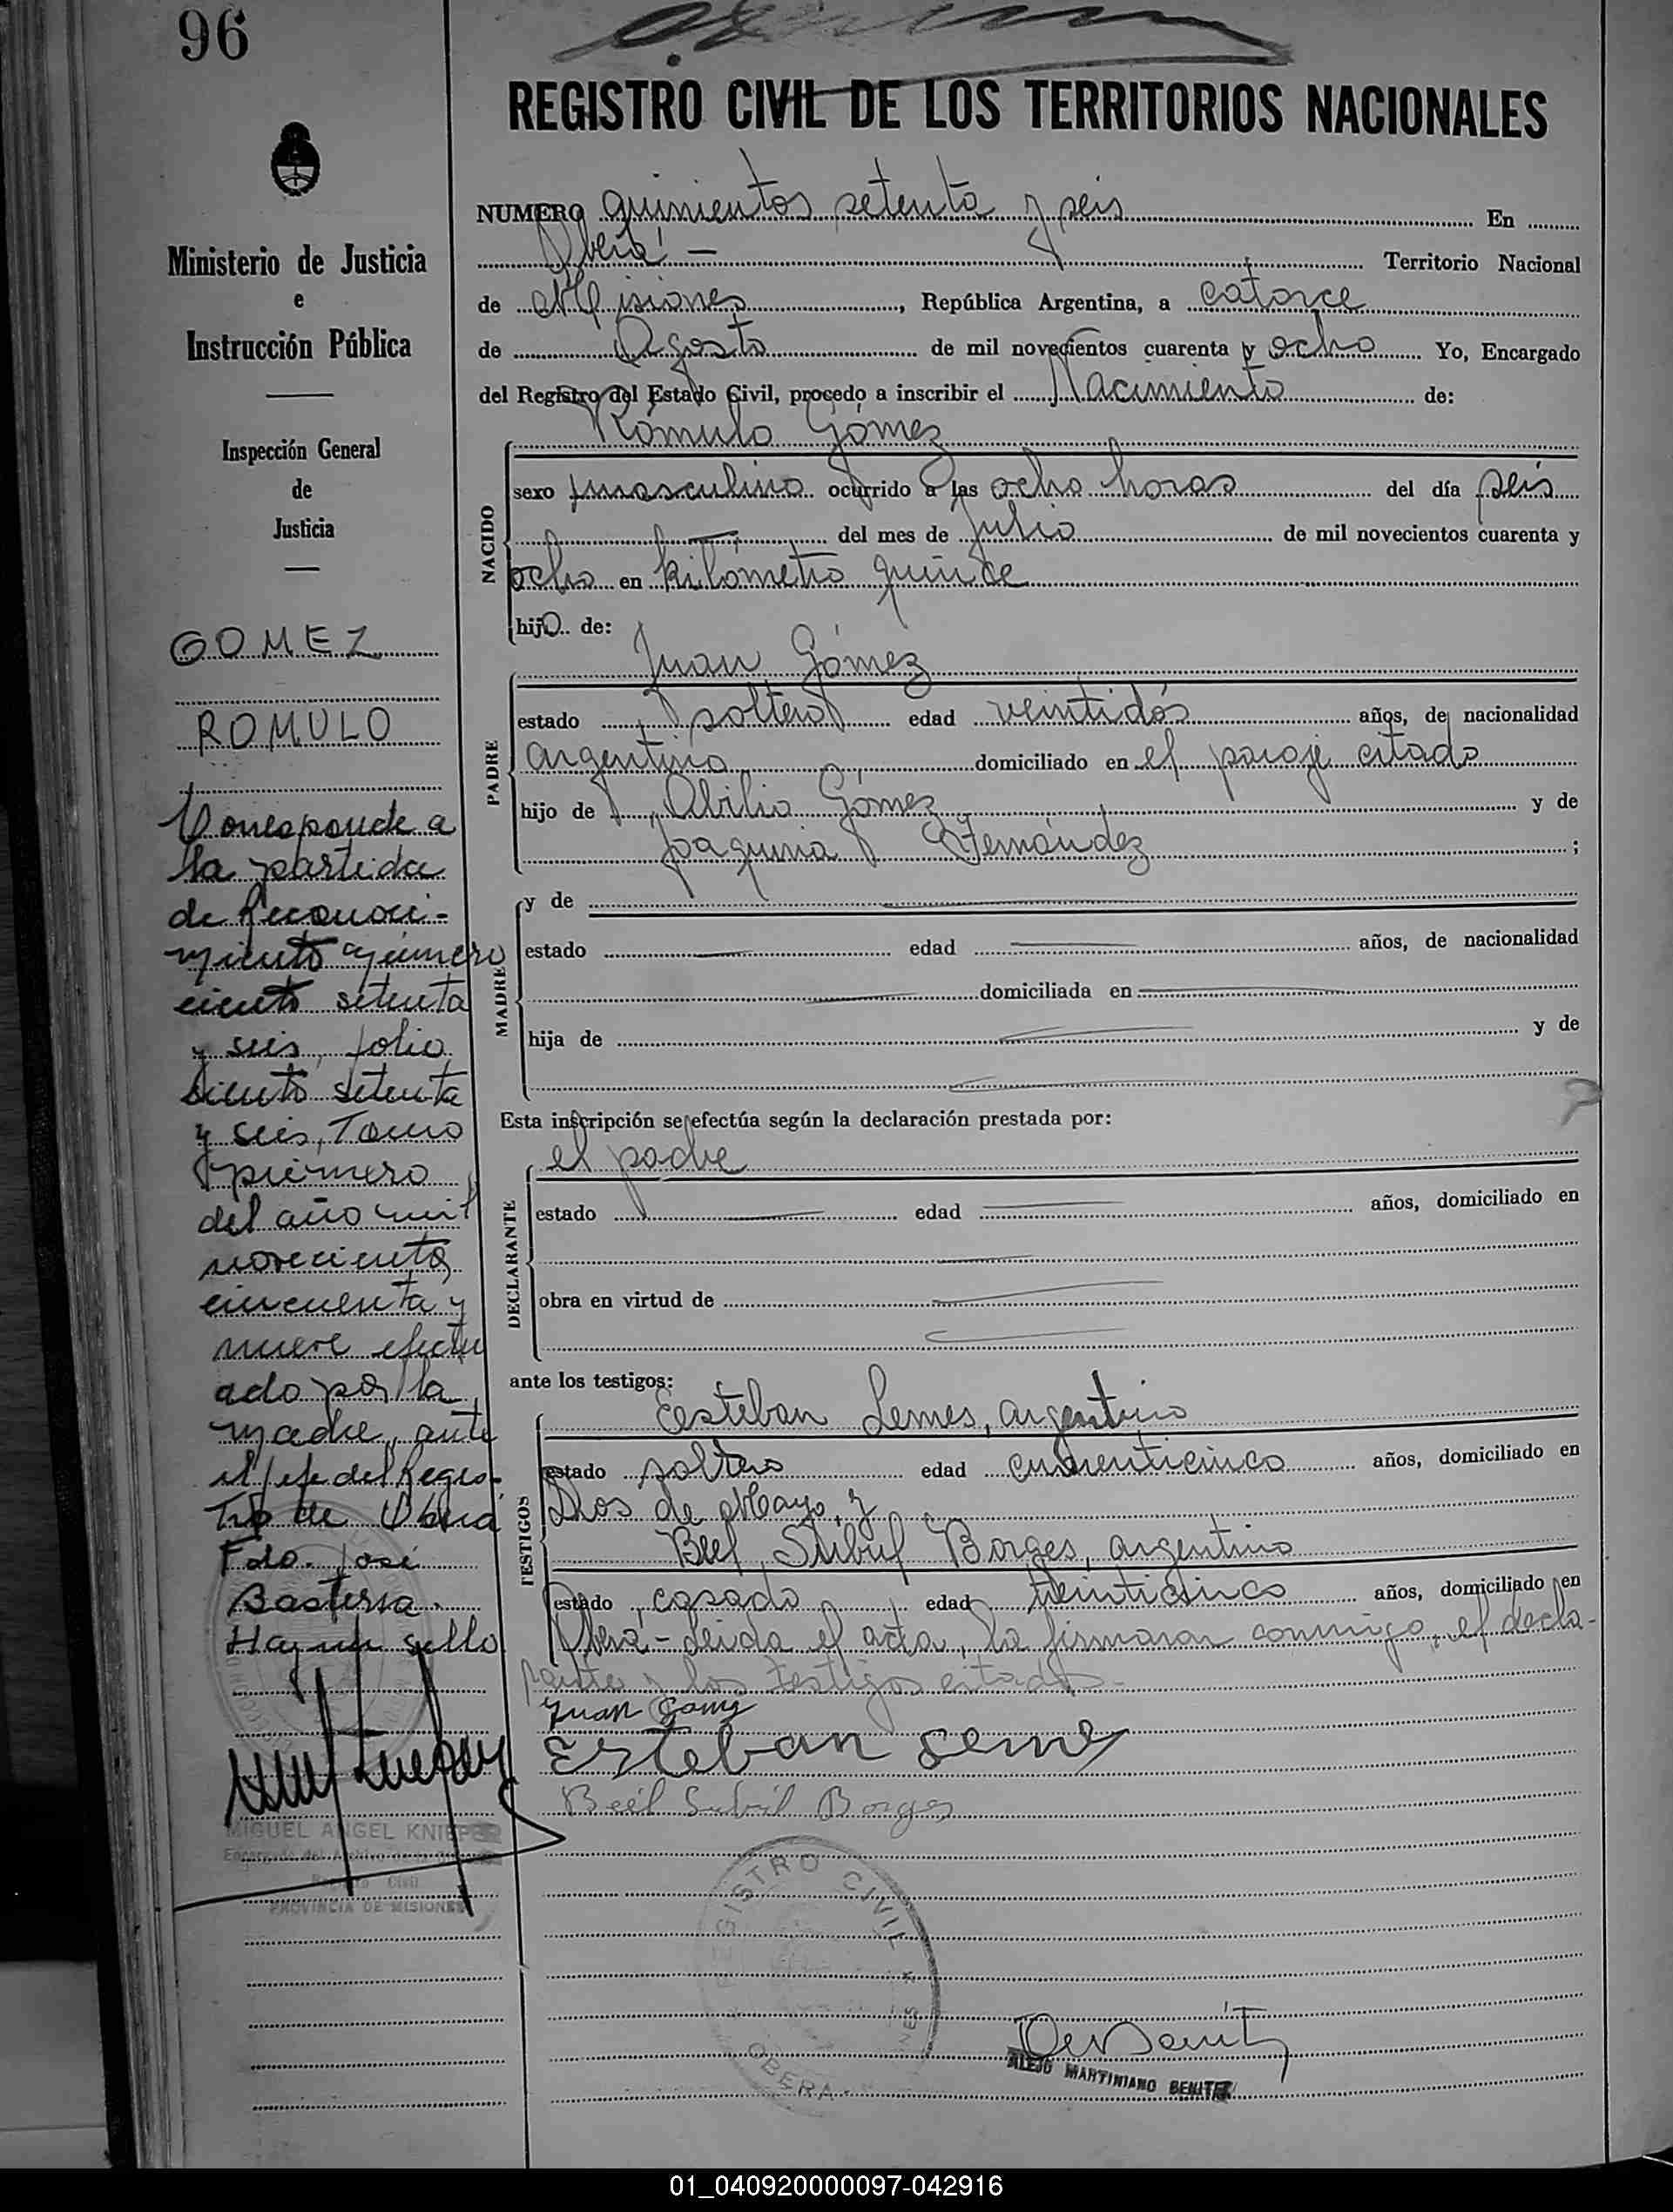 96
REGISTRO CIVIL DE LOS TERRITORIOS NACIONALES
Ministerio de Justicia
e
Instrucción Pública
Inspección General
de
Justicia
GOMEZ
ROMULO
Corresponde a
la partida
de Reconoci-
miento número
ciento setenta
y seis, folio
ciento setenta
y seis, Tomo
primero
del año mil
novecientos
cincuenta y
nueve efectu
ado por la
madre, ante
el jefe del Regis-
tro de Oberá
Fdo. José
Basterra.
Hay un sello
MIGUEL ANGEL KNIEPER
Encargado del Archivo
Registro Civil
PROVINCIA DE MISIONES
NUMERO quinientos setenta y seis En
Oberá - Territorio Nacional
de Misiones, República Argentina, a catorce
de Agosto de mil novecientos cuarenta y ocho Yo, Encargado
del Registro del Estado Civil, procedo a inscribir el Nacimiento de:
NACIDO
Rómulo Gómez
sexo masculino ocurrido a las ocho horas del día seis
del mes de Julio de mil novecientos cuarenta y
ocho en kilómetro quince
hijo de:
PADRE
Juan Gómez
estado soltero edad veintidós años, de nacionalidad
argentino domiciliado en el paraje citado
hijo de Abilio Gómez y de
Joaquina Fernández ;
MADRE
y de
estado edad años, de nacionalidad
domiciliada en
hija de y de
Esta inscripción se efectúa según la declaración prestada por:
DECLARANTE
el padre
estado edad años, domiciliado en
obra en virtud de
ante los testigos:
TESTIGOS
Esteban Lemes, argentino
estado soltero edad cuarenticinco años, domiciliado en
Dos de Mayo, y
Beel Subil Borges, argentino
estado casado edad treinticinco años, domiciliado en
Oberá - Leida el acta, la firmaron conmigo, el decla-
rante y los testigos citados.
Juan Gomez
Esteban Leme
Beél Subíl Borges
REGISTRO CIVIL
OBERA
ALEJO MARTINIANO BENITEZ
01_040920000097-042916